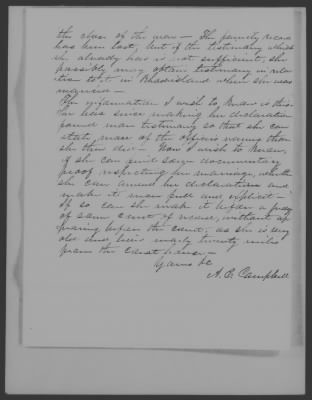 the close of the war — The family record
has been lost, but if the testimony which
she already has is not sufficient, she
possibly may obtain testimony in rela-
tion to it in Rhode Island where she was
married —
The information I wish to know is this:
has since making her declaration
found more testimony so that she can
state more of the officers names than
she then did — Now I wish to know,
if she can find some documentary
proof respecting her marriage, whether
she can amend her declaration and
make it more full and explicit —
If so can she make it before a judge
of some court of record, without ap
pearing before the court, as she is very
old and lives nearly twenty miles
from the Court house —
Yours &c
A. C. Campbell